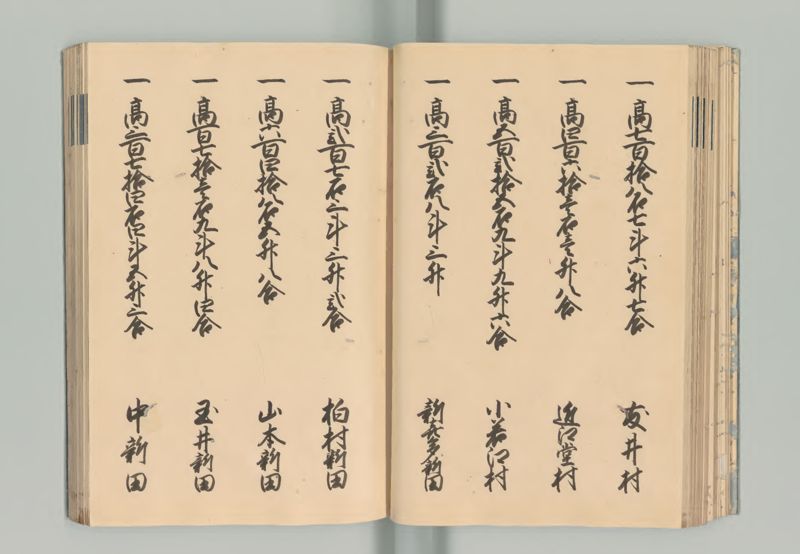 一 高七百拾八石七斗六升七合 友井村
一 高四百六拾壱石壱升八合 近江堂村
一 高五百弐拾五石九斗九升六合 小若江村
一 高三百弐石八斗三升 新喜多新田
一 高弐百七石二斗三升弐合 柏村新田
一 高六百四拾八石五升八合 山本新田
一 高百七拾壱石九斗八升四合 玉井新田
一 高三百七拾四石四斗五升三合 中新田